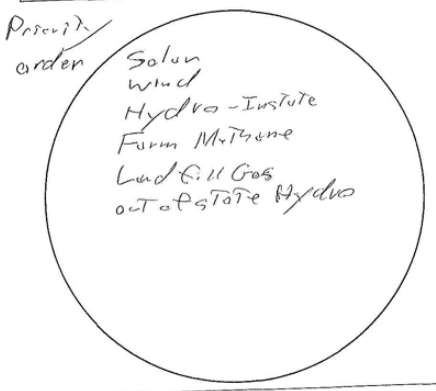 Priority
order
Solar
Wind
Hydro-Instate
Farm Methane
Landfill Gas
out of state Hydro